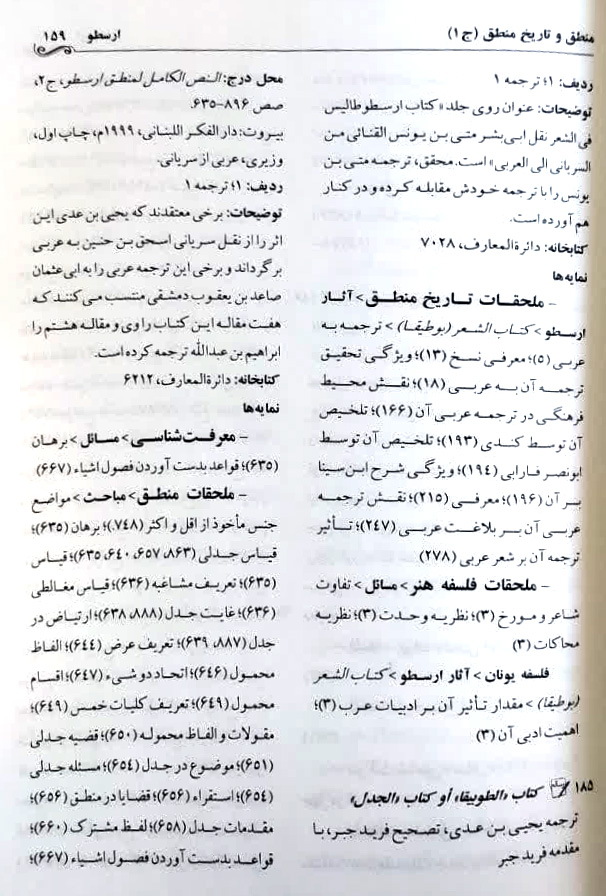 منطق و تاریخ منطق (ج۱)
ارسطو ۱۵۹
ردیف: ۱؛ ترجمه ۱
توضیحات: عنوان روی جلد «کتاب ارسطوطالیس
فی الشعر نقل ابی بشر متی بن یونس القنائی من
السریانی الی العربی» است. محقق، ترجمه متی بن
یونس را با ترجمه خودش مقابله کرده و در کنار
هم آورده است.
کتابخانه: دائرةالمعارف، ۷۰۲۸
نمایه‌ها
– ملحقات تاریخ منطق > آثار
ارسطو > کتاب الشعر (بوطیقا) > ترجمه به
عربی (۵)؛ معرفی نسخ (۱۳)؛ ویژگی تحقیق
ترجمه آن به عربی (۱۸)؛ نقش محیط
فرهنگی در ترجمه عربی آن (۱۶۶)؛ تلخیص
آن توسط کندی (۱۹۳)؛ تلخیص آن توسط
ابونصر فارابی (۱۹۴)؛ ویژگی شرح ابن سینا
بر آن (۱۹۶)؛ معرفی (۲۱۵)؛ نقش ترجمه
عربی آن بر بلاغت عربی (۲۴۷)؛ تأثیر
ترجمه آن بر شعر عربی (۲۷۸)
– ملحقات فلسفه هنر > مسائل > تفاوت
شاعر و مورخ (۳)؛ نظریه وحدت (۳)؛ نظریه
محاکات (۳)
فلسفه یونان > آثار ارسطو > کتاب الشعر
(بوطیقا) > مقدار تأثیر آن بر ادبیات عرب (۳)؛
اهمیت ادبی آن (۳)
۱۸۵ کتاب «الطوبیقا» أو کتاب «الجدل»
ترجمه یحیی بن عدی، تصحیح فرید جبر، با
مقدمه فرید جبر
محل درج: النص الکامل لمنطق ارسطو، ج۲،
صص ۸۹۶-۶۳۵.
بیروت: دار الفکر اللبنانی، ۱۹۹۹م، چاپ اول،
وزیری، عربی از سریانی.
ردیف: ۱؛ ترجمه ۱
توضیحات: برخی معتقدند که یحیی بن عدی این
اثر را از نقل سریانی اسحق بن حنین به عربی
برگرداند و برخی این ترجمه عربی را به ابی عثمان
صاعد بن یعقوب دمشقی منتسب می کنند که
هفت مقاله این کتاب را وی و مقاله هشتم را
ابراهیم بن عبدالله ترجمه کرده است.
کتابخانه: دائرةالمعارف، ۶۲۱۲
نمایه‌ها
– معرفت‌شناسی > مسائل > برهان
(۶۳۵)؛ قواعد بدست آوردن فصول اشیاء (۶۶۷)
– ملحقات منطق > مباحث > مواضع
جنس مأخوذ از اقل و اکثر (۷۴۸.)؛ برهان (۶۳۵)؛
قیاس جدلی (۸۶۳، ۶۵۷، ۶۴۰، ۶۳۵)؛ قیاس
(۶۳۵)؛ تعریف مشاغبه (۶۳۶)؛ قیاس مغالطی
(۶۳۶)؛ غایت جدل (۸۸۸، ۶۳۸)؛ ارتیاض در
جدل (۸۸۷، ۶۳۹)؛ تعریف عرض (۶۴۴)؛ الفاظ
محمول (۶۴۶)؛ اتحاد دو شیء (۶۴۷)؛ اقسام
محمول (۶۴۹)؛ تعریف کلیات خمس (۶۴۹)؛
مقولات و الفاظ محموله (۶۵۰)؛ قضیه جدلی
(۶۵۱)؛ موضوع در جدل (۶۵۴)؛ مسئله جدلی
(۶۵۴)؛ استقراء (۶۵۶)؛ قضایا در منطق (۶۵۶)؛
مقدمات جدل (۶۵۸)؛ لفظ مشترک (۶۶۰)؛
قواعد بدست آوردن فصول اشیاء (۶۶۷)؛